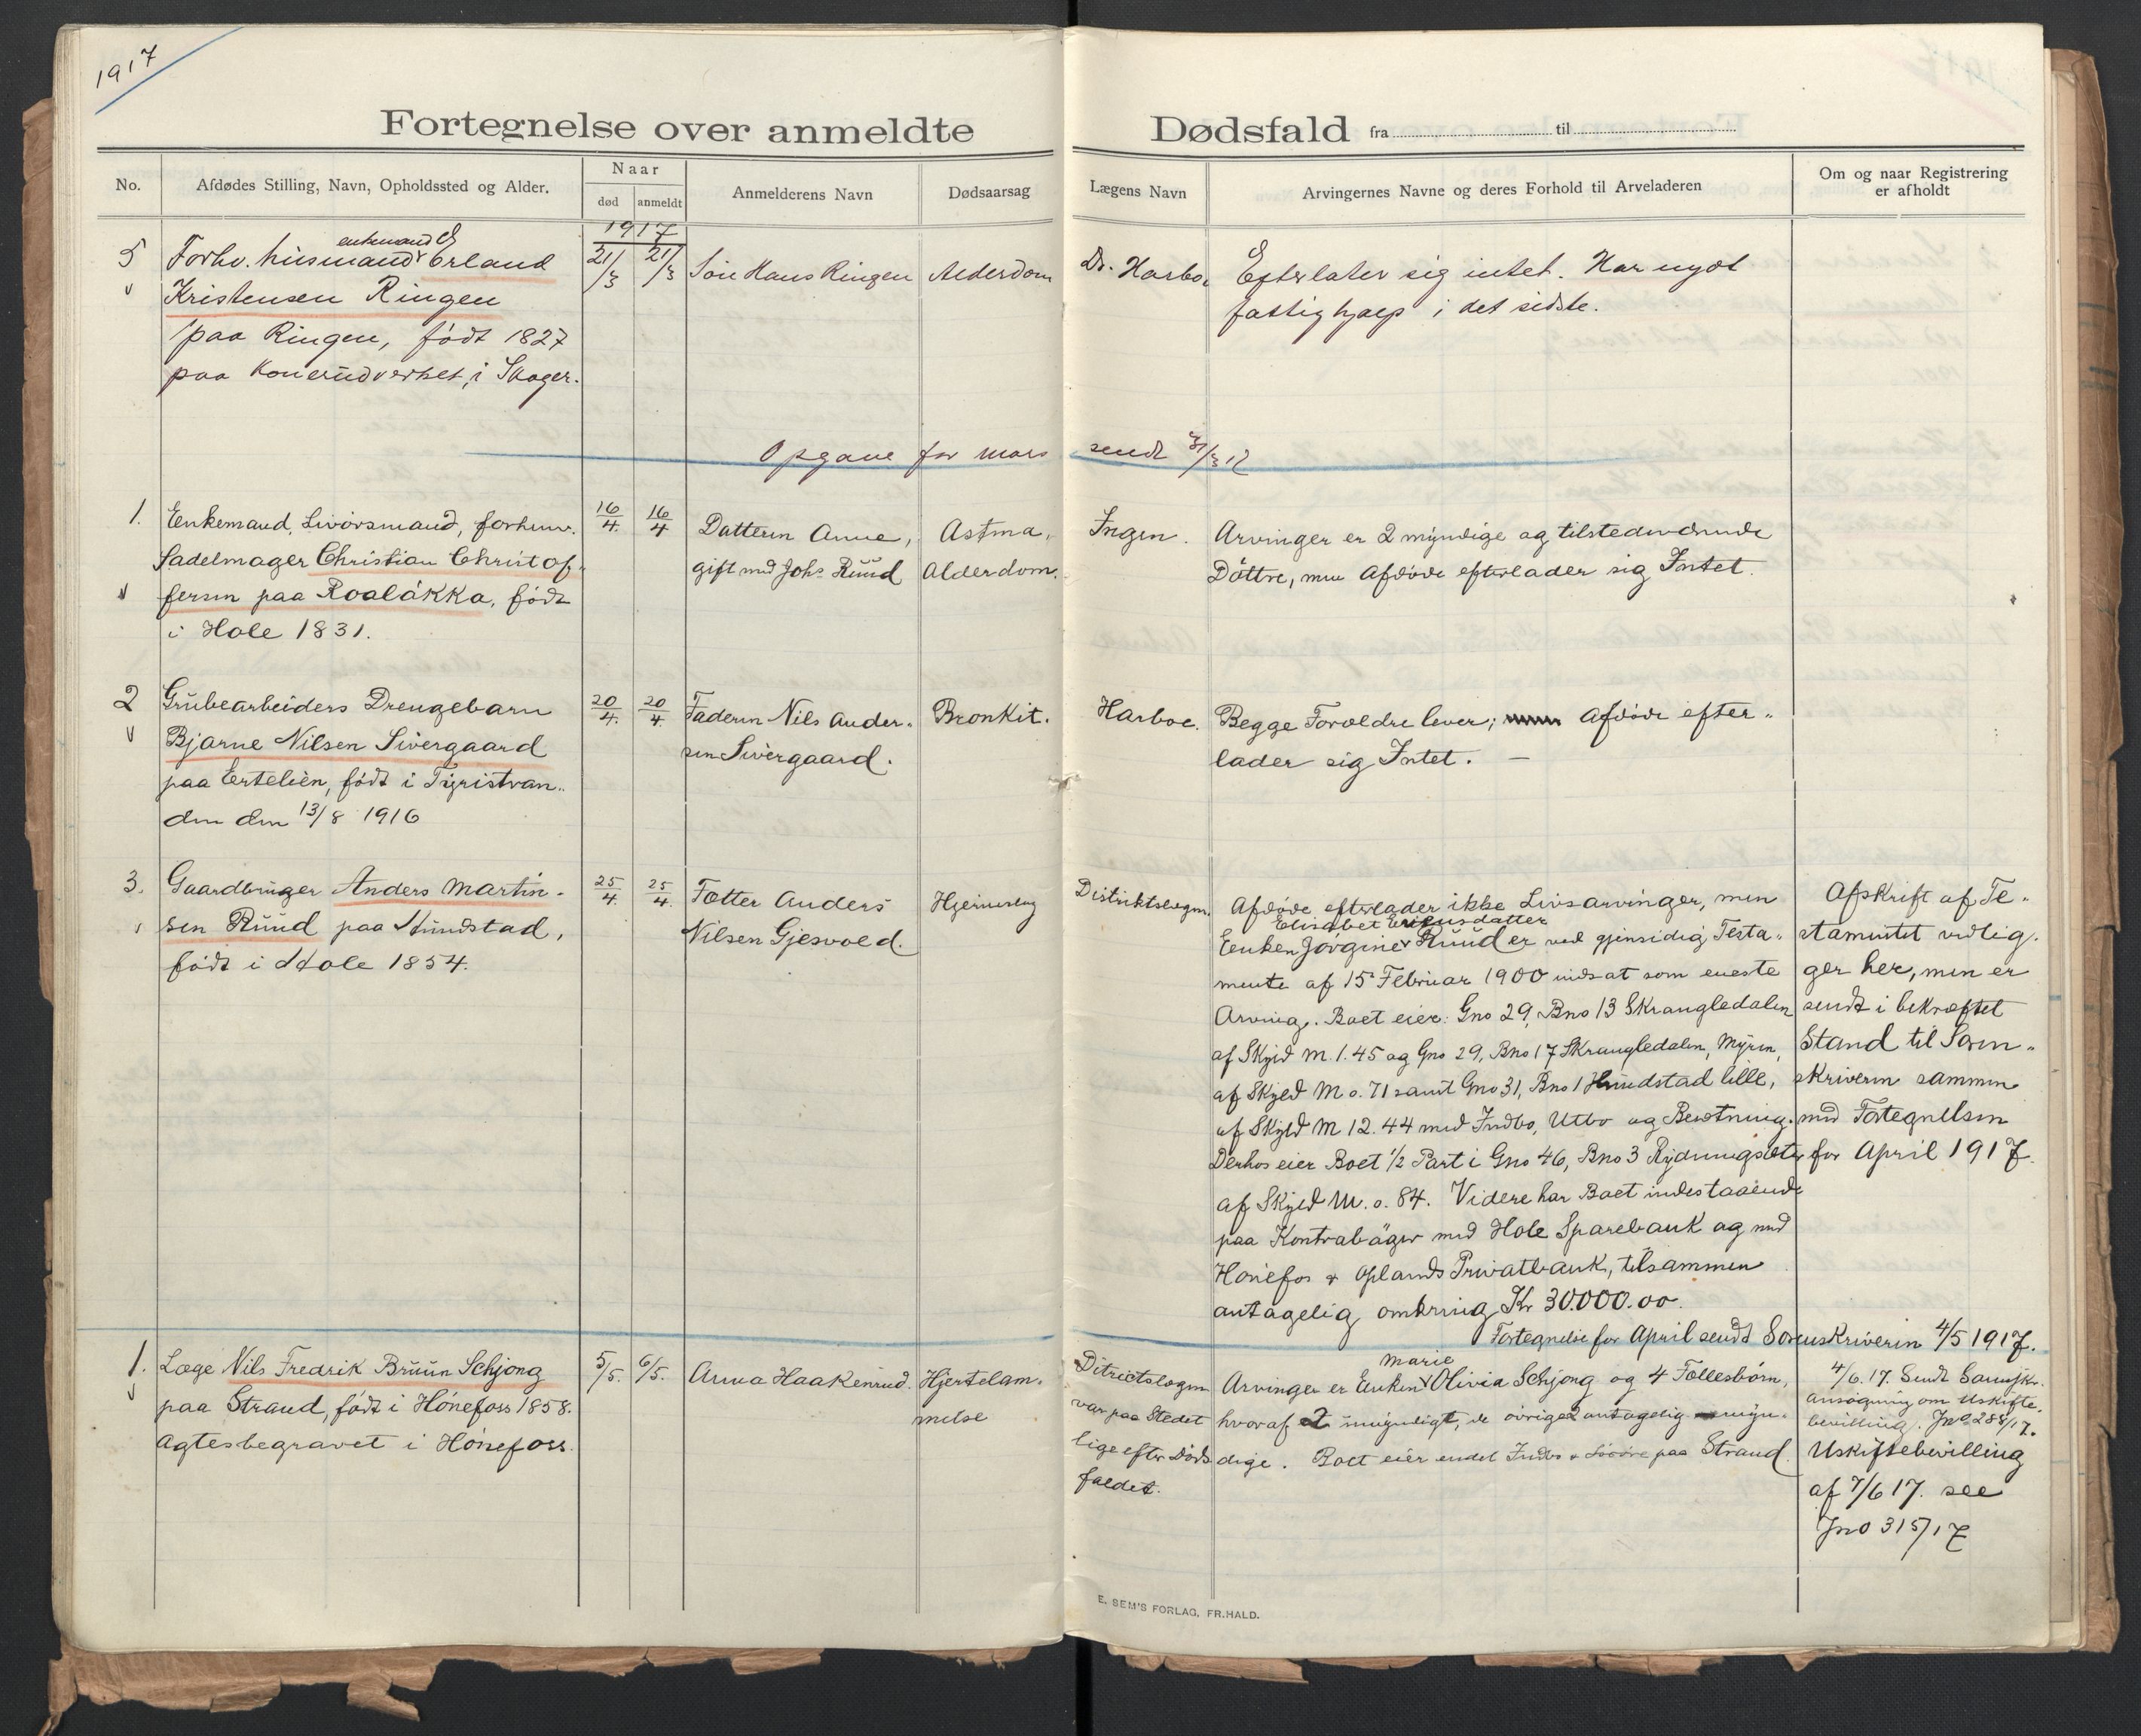 1917
Fortegnelse over anmeldte Dødsfald fra til
No.
Afdødes Stilling, Navn, Opholdssted og Alder.
Naar
død
anmeldt
Anmelderens Navn
Dødsaarsag
Lægens Navn
Arvingernes Navne og deres Forhold til Arveladeren
Om og naar Registrering
er afholdt
1917
5
enkemand
Forhv. husmand Erland
Kristensen Ringen
paa Ringen, født 1827
paa Konerudverket, i Skoger.
21/3
21/3
Søn Hans Ringen
Alderdom
Dr. Harbo.
Efterlater sig intet. Har nydt
fattighjælp i det sidste.
Opgave for mars sendt 31/3 17
1.
Enkemand, Livörsmand, forhenv.
Sadelmager Christian Christof-
fersen paa Roaløkka, født
i Hole 1831.
16/4.
16/4
Datteren Anne,
gift med Johs Ruud
Astma,
Alderdom.
Ingen.
Arvinger er 2 myndige og tilstedeværende
Døttre, men Afdøde efterlader sig Intet.
2
Grubearbeiders Drengebarn
Bjarne Nilsen Sivergaard
paa Ertelien, født i Tyristran-
den den 13/8 1916
20/4.
20/4
Faderen Nils Ander-
sen Sivergaard.
Bronkit.
Harboe.
Begge Forældre lever; Afdøde efter-
lader sig Intet. —
3.
Gaardbruger Anders Martin-
sen Ruud paa Hundstad,
født i Hole 1854.
25/4.
25/4.
Fætter Anders
Nilsen Gjesvold.
Hjerneslag
Distriktslægen.
Afdøde efterlader ikke Livsarvinger, men
Elisabet Eriksdatter
Enken Jørgine Ruud er ved gjensidig Testa-
mente af 15 Februar 1900 indsat som eneste
Arving. Boet eier: Gno 29, Bno 13 Skrangledalen
af Skyld M. 1.45 og Gno 29, Bno 17 Skrangledalen, Myren,
af Skyld M 0.71 samt Gno 31, Bno 1 Hundstad lille,
af Skyld M 12.44 med Indbo, Utbo og Besætning.
Derhos eier Boet 1/2 Part i Gno 46, Bno 3 Rydningsæter
af Skyld M. 0.84. Videre har Boet indestaaende
paa Kontrabøger med Hole Sparebank og med
Hønefos & Oplands Privatbank, tilsammen
antagelig omkring Kr 30.000.00.
Afskrift af Te-
stamentet vedlig-
ger her, men er
sendt i bekræftet
Stand til Soren-
skriveren sammen
med Fortegnelsen
for April 1917.
Fortegnelse for April sendt Sorenskriveren 4/5 1917.
1.
Læge Nils Fredrik Bruun Schjong
paa Strand, født i Hönefoss 1858.
Agtes begravet i Hönefoss.
5/5.
6/5.
Anna Haakenrud.
Hjertelam-
melse
Ditrictslægen
var paa Stedet
lige efter Døds
faldet.
Marie
Arvinger er Enken Olivia Schjong og 4 Fællesbørn,
hvoraf 2 umyndigt, de övrige 2 antagelig myn-
dige. Boet eier endel Indbo & Løsöre paa Strand.
4/6.17. Sendt Sorenskr.
ansøgning om Uskifte-
bevilling. Jno 288/17.
Uskiftebevilling
af 7/6 17. see
Jno 315/17
E. SEM'S FORLAG, FR.HALD.